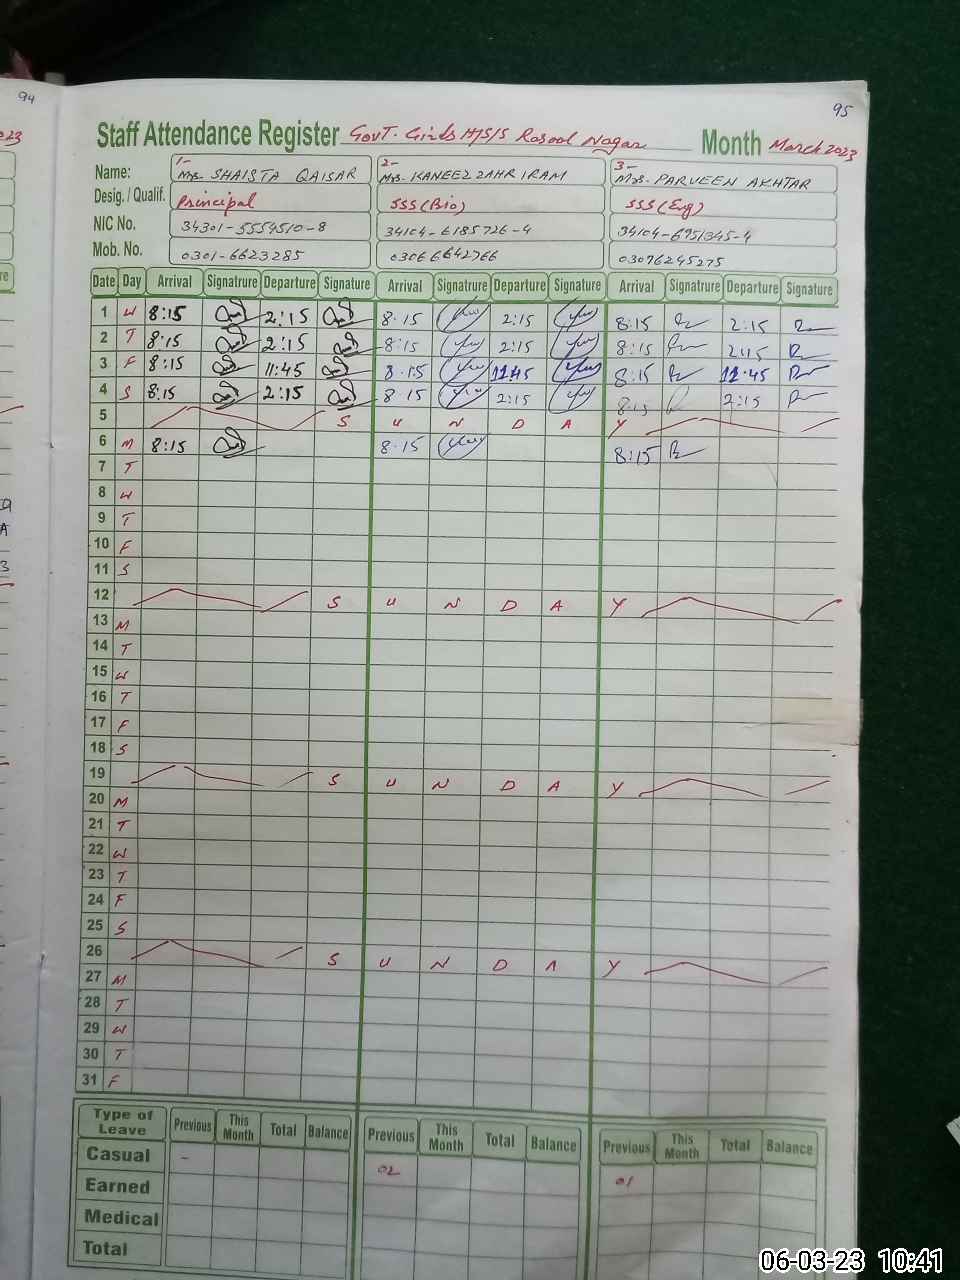 94
95
2023
Staff Attendance Register Govt. Girls H/S/S Rasool Nagar Month March 2023
1- 2- 3-
Name: Mrs. SHAISTA QAISAR Mrs. KANEEZ ZAHR IRAM Mrs. PARVEEN AKHTAR
Desig. / Qualif. Principal SSS (Bio) SSS (Eng)
NIC No. 34301-5554510-8 34104-6185726-4 34104-6951345-4
Mob. No. 0301-6623285 03066642766 03076245275
Date Day Arrival Signatrure Departure Signature Arrival Signatrure Departure Signature Arrival Signatrure Departure Signature
1 W 8:15 2:15 8.15 2:15 8:15 2:15
2 T 8:15 2:15 8:15 2:15 8:15 2:15
3 F 8:15 11:45 8.15 11:45 8:15 11:45
4 S 8:15 2:15 8.15 2:15 8:15 2:15
5 S U N D A Y
6 M 8:15 8.15 8:15
7 T
8 W
9 T
10 F
11 S
12 S U N D A Y
13 M
14 T
15 W
16 T
17 F
18 S
19 S U N D A Y
20 M
21 T
22 W
23 T
24 F
25 S
26 S U N D A Y
27 M
28 T
29 W
30 T
31 F
Type of Leave Previous This Month Total Balance Previous This Month Total Balance Previous This Month Total Balance
Casual - 02 01
Earned
Medical
Total
06-03-23 10:41